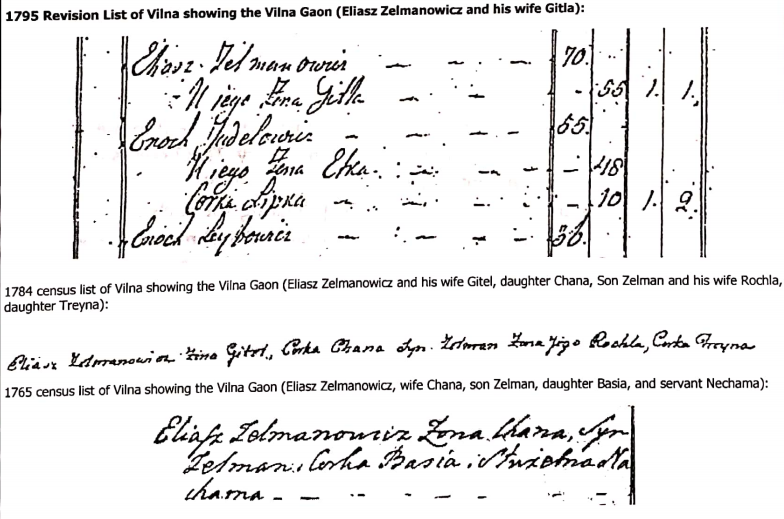 1795 Revision List of Vilna showing the Vilna Gaon (Eliasz Zelmanowicz and his wife Gitla):
Eliasz Zelmanowicz — — — — 70.
U jego Żona Gitla — — - 55 1. 1.
Enoch Judelowicz — — — — 65.
U jego Żona Etka — — — - 48
Corka Lipka — — — - 10 1. 2.
Enoch Leybowicz — — — — 56.
1784 census list of Vilna showing the Vilna Gaon (Eliasz Zelmanowicz and his wife Gitel, daughter Chana, Son Zelman and his wife Rochla,
daughter Treyna):
Eliasz Zelmanowicz Żona Gitel, Corka Chana Syn Zelman Żona Jego Rochla, Corka Treyna
1765 census list of Vilna showing the Vilna Gaon (Eliasz Zelmanowicz, wife Chana, son Zelman, daughter Basia, and servant Nechama):
Eliasz Zelmanowicz Żona Chana, Syn
Zelman, Corka Basia, Na
chama - — — — — — —